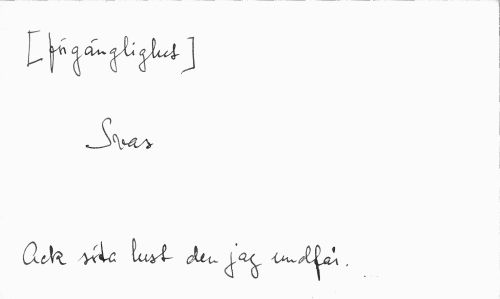 [förgänglighet]
Svar
Ack sista lust den jag undfår.